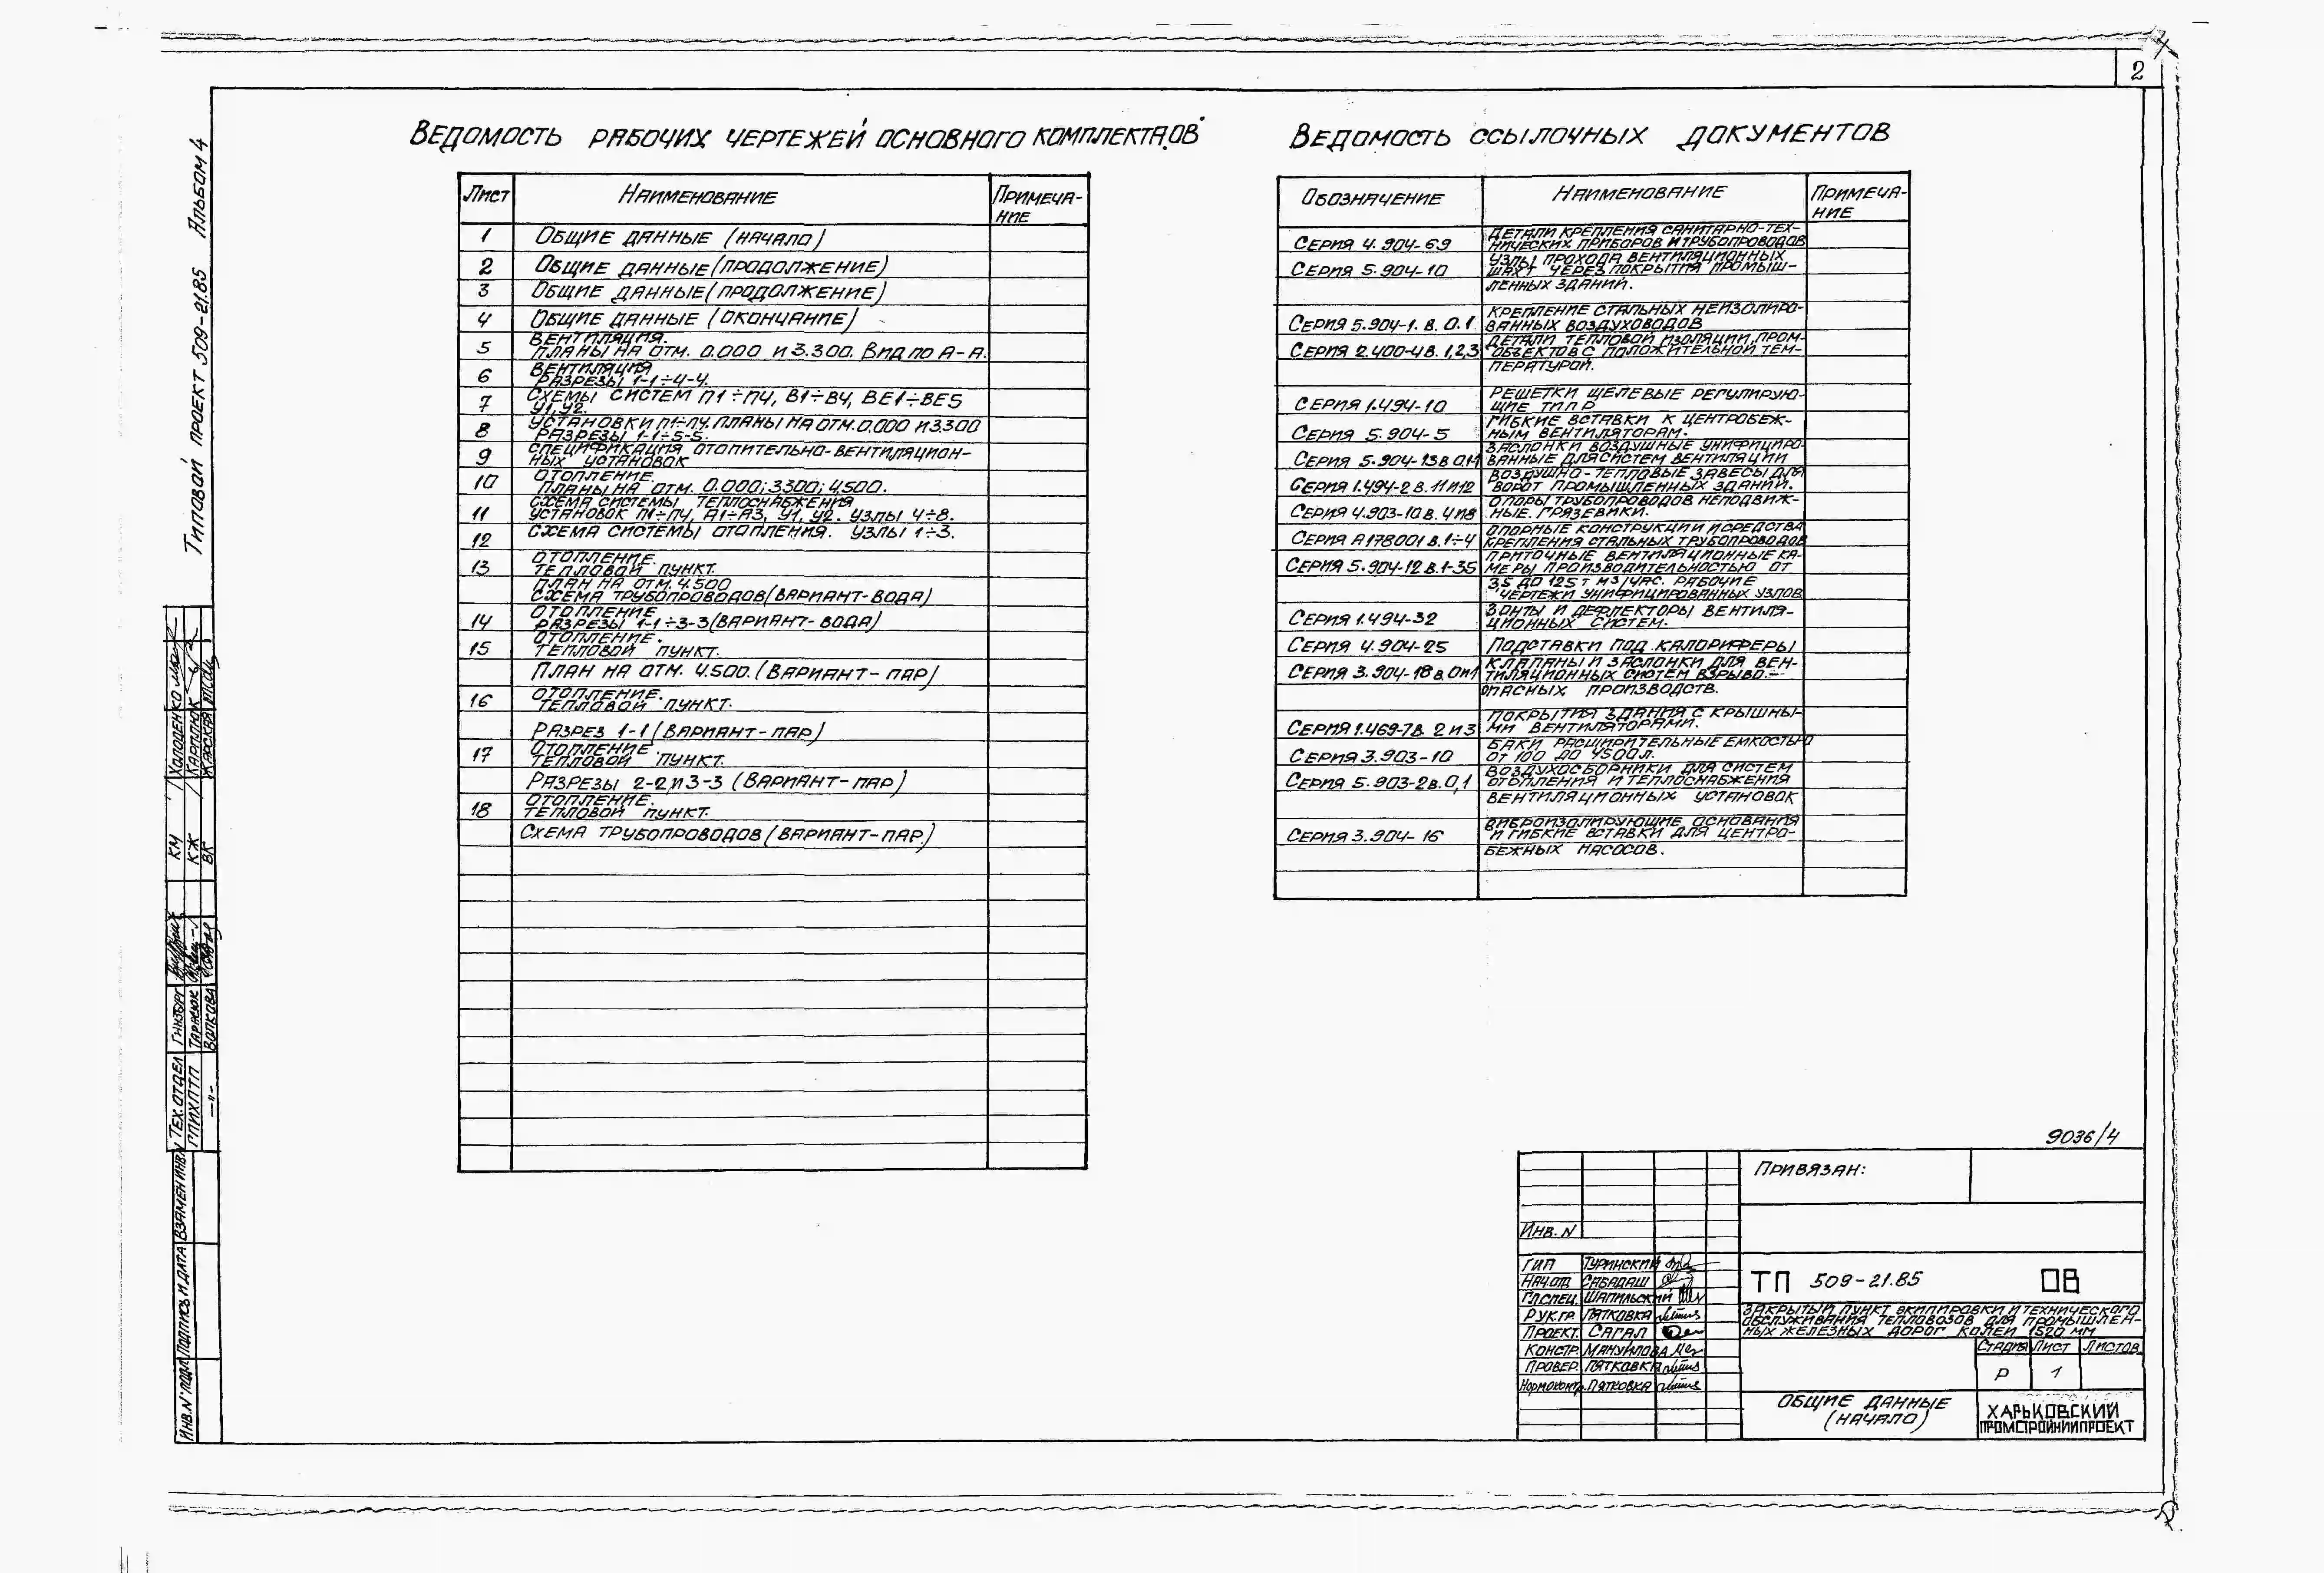 2
Типовой проект 509-21.85 Альбом 4
Ведомость рабочих чертежей основного комплекта ОВ
Лист Наименование Примеча-
ние
1 Общие данные (начало)
2 Общие данные (продолжение)
3 Общие данные (продолжение)
4 Общие данные (окончание)
Вентиляция.
5 Планы на отм. 0.000 и 3.300. Вид по А-А.
Вентиляция
6 Разрезы 1-1÷4-4.
7 Схемы систем П1÷П4, В1÷В4, ВЕ1÷ВЕ5
У1, У2.
8 Установки П1÷П4. Планы на отм. 0.000 и 3.300
Разрезы 1-1÷5-5.
9 Спецификация отопительно-вентиляцион-
ных установок
Отопление.
10 Планы на отм. 0.000; 3300; 4.500.
Схема системы теплоснабжения
11 установок П1÷П4, А1÷А3, У1, У2. Узлы 4÷8.
12 Схема системы отопления. Узлы 1÷3.
Отопление.
13 Тепловой пункт.
План на отм. 4.500
Схема трубопроводов (вариант-вода)
Отопление.
14 Разрезы 1-1÷3-3 (вариант-вода)
Отопление.
15 Тепловой пункт.
План на отм. 4.500. (вариант-пар)
Отопление.
16 Тепловой пункт.
Разрез 1-1 (вариант-пар)
Отопление.
17 Тепловой пункт.
Разрезы 2-2 и 3-3 (вариант-пар)
Отопление.
18 Тепловой пункт.
Схема трубопроводов (вариант-пар.)
Ведомость ссылочных документов
Обозначение Наименование Примеча-
ние
Детали крепления санитарно-тех-
Серия 4.904-69 нических приборов и трубопроводов
Узлы прохода вентиляционных
Серия 5.904-10 шахт через покрытия промыш-
ленных зданий.
Крепление стальных неизолиро-
Серия 5.904-1. в. 0.1 ванных воздуховодов
Детали тепловой изоляции, пром-
Серия 2.400-4 в. 1,2,3 объектов с положительной тем-
пературой.
Решетки щелевые регулирую-
Серия 1.494-10 щие тип Р
Гибкие вставки к центробеж-
Серия 5.904-5 ным вентиляторам.
Заслонки воздушные унифициро-
Серия 5.904-13 в 0.1-1 ванные для систем вентиляции
Воздушно-тепловые завесы для
Серия 1.494-2 в. 11 и 12 ворот промышленных зданий.
Опоры трубопроводов неподвиж-
Серия 4.903-10 в. 4 и 8 ные. Грязевики.
Опорные конструкции и средства
Серия А178001 в. 1÷4 крепления стальных трубопроводов
Приточные вентиляционные ка-
Серия 5.904-12 в. 1-35 меры производительностью от
3,5 до 125 т м3/час. Рабочие
чертежи унифицированных узлов
Зонты и дефлекторы вентиля-
Серия 1.494-32 ционных систем.
Серия 4.904-25 Подставки под калориферы
Клапаны и заслонки для вен-
Серия 3.904-18 в 0 и 1 тиляционных систем взрыво-
опасных производств.
Покрытия здания с крышны-
Серия 1.469-7 в. 2 и 3 ми вентиляторами.
Баки расширительные емкостью
Серия 3.903-10 от 100 до 4500 л.
Воздухосборники для систем
Серия 5.903-2 в. 0,1 отопления и теплоснабжения
вентиляционных установок
Виброизолирующие основания
Серия 3.904-16 и гибкие вставки для центро-
бежных насосов.
9036/4
Привязан:
Инв. N
ГИП Туринский
Нач. отд. Сабадаш
Гл. спец. Шапильский
Рук. гр. Пятковка
Проект. Сагал
Констр. Мануйлова
Провер. Пятковка
Нормоконтр. Пятковка
ТП 509-21.85 ОВ
Закрытый пункт экипировки и технического
обслуживания тепловозов для промышлен-
ных железных дорог колеи 1520 мм
Стадия Лист Листов
Р 1
Общие данные
(начало)
ХАРЬКОВСКИЙ
ПРОМСТРОЙНИИПРОЕКТ
КМ Холоденко
КЖ Карплюк
ВК Жарская
Тех. отдел
ГПИХПТП Тарасюк
—"— Волкова
Инв. N подл. Подпись и дата Взамен инв. N